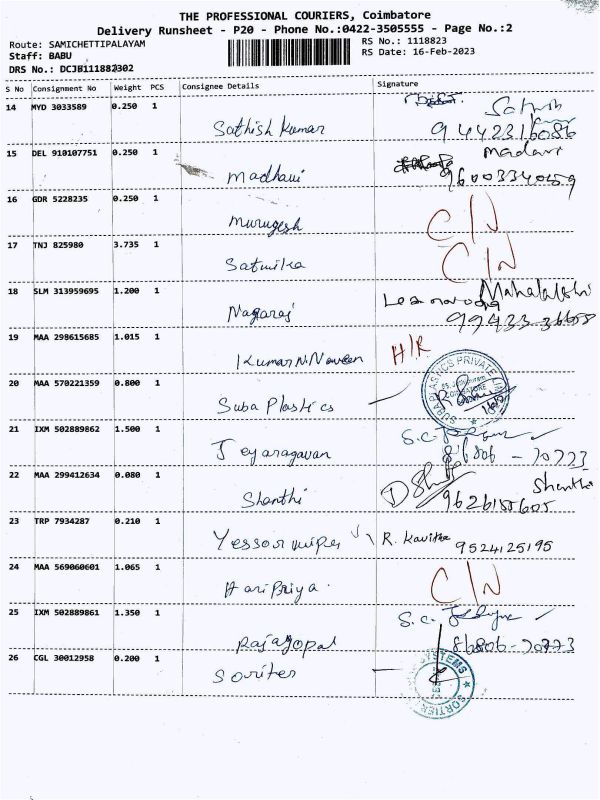 THE PROFESSIONAL COURIERS, Coimbatore
Delivery Runsheet - P20 - Phone No.:0422-3505555 - Page No.:2
Route: SAMICHETTIPALAYAM RS No.: 1118823
Staff: BABU RS Date: 16-Feb-2023
DRS No.: DCJB111882302
S No Consignment No Weight PCS Consignee Details Signature
14 MYD 3033589 0.250 1 Sathish Kumar
9442316086
15 DEL 910107751 0.250 1 Madhavi Madavi
9600334059
16 GDR 5228235 0.250 1 Murugesh C/N
17 TNJ 825980 3.735 1 Satmika C/N
18 SLM 313959695 1.200 1 Nagaraj Mahalakshi
99433-36658
19 MAA 298615685 1.015 1 Kumar N Naveen H/R
20 MAA 570221359 0.800 1 Suba Plastics
SUBA PLASTICS PRIVATE
21 IXM 502889862 1.500 1 Jeyaragavan S.C.
86806-70773
22 MAA 299412634 0.080 1 Shanthi Shanthi
9626155605
23 TRP 7934287 0.210 1 R. Kavitha
9524125195
24 MAA 569060601 1.065 1 Haripriya. C/N
25 IXM 502889861 1.350 1 Rajagopal S.C.
86806-70773
26 CGL 30012958 0.200 1 Soriter
SYSTEMS
SORTIER